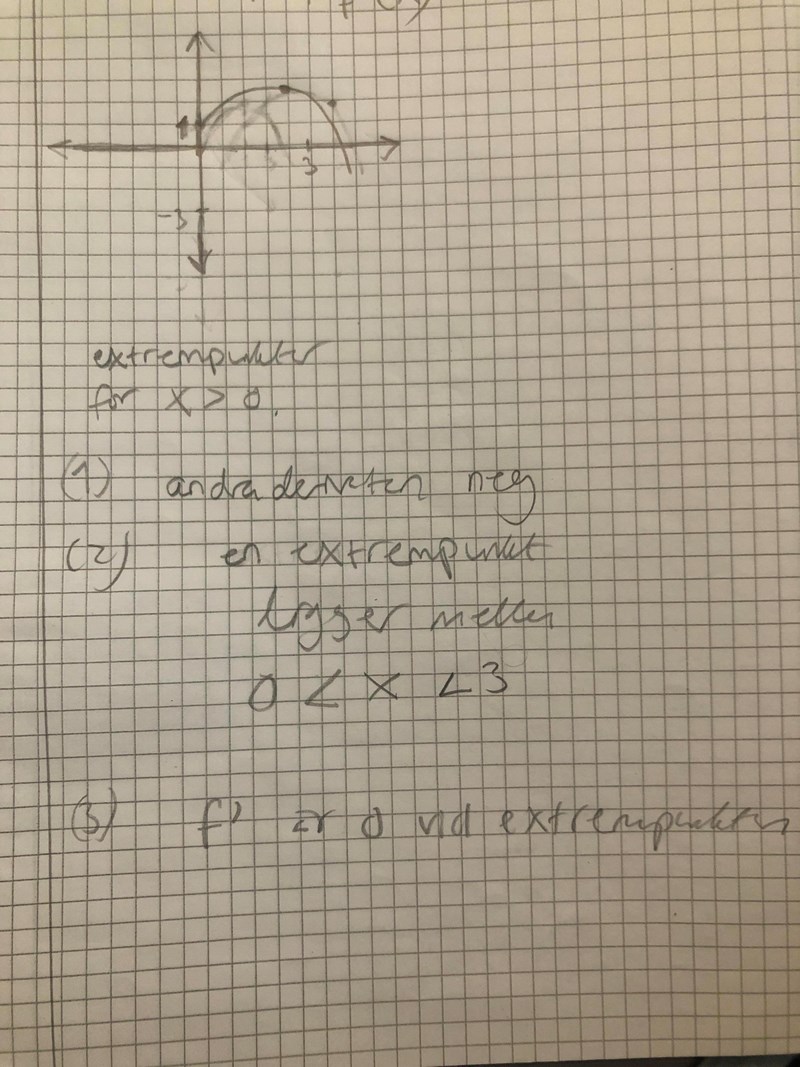 1
3
-3
extrempunkter
för x > 0.
(1) andraderivatan neg
(2) en extrempunkt
ligger mellan
0 < x < 3
(3) f' är 0 vid extrempunkten